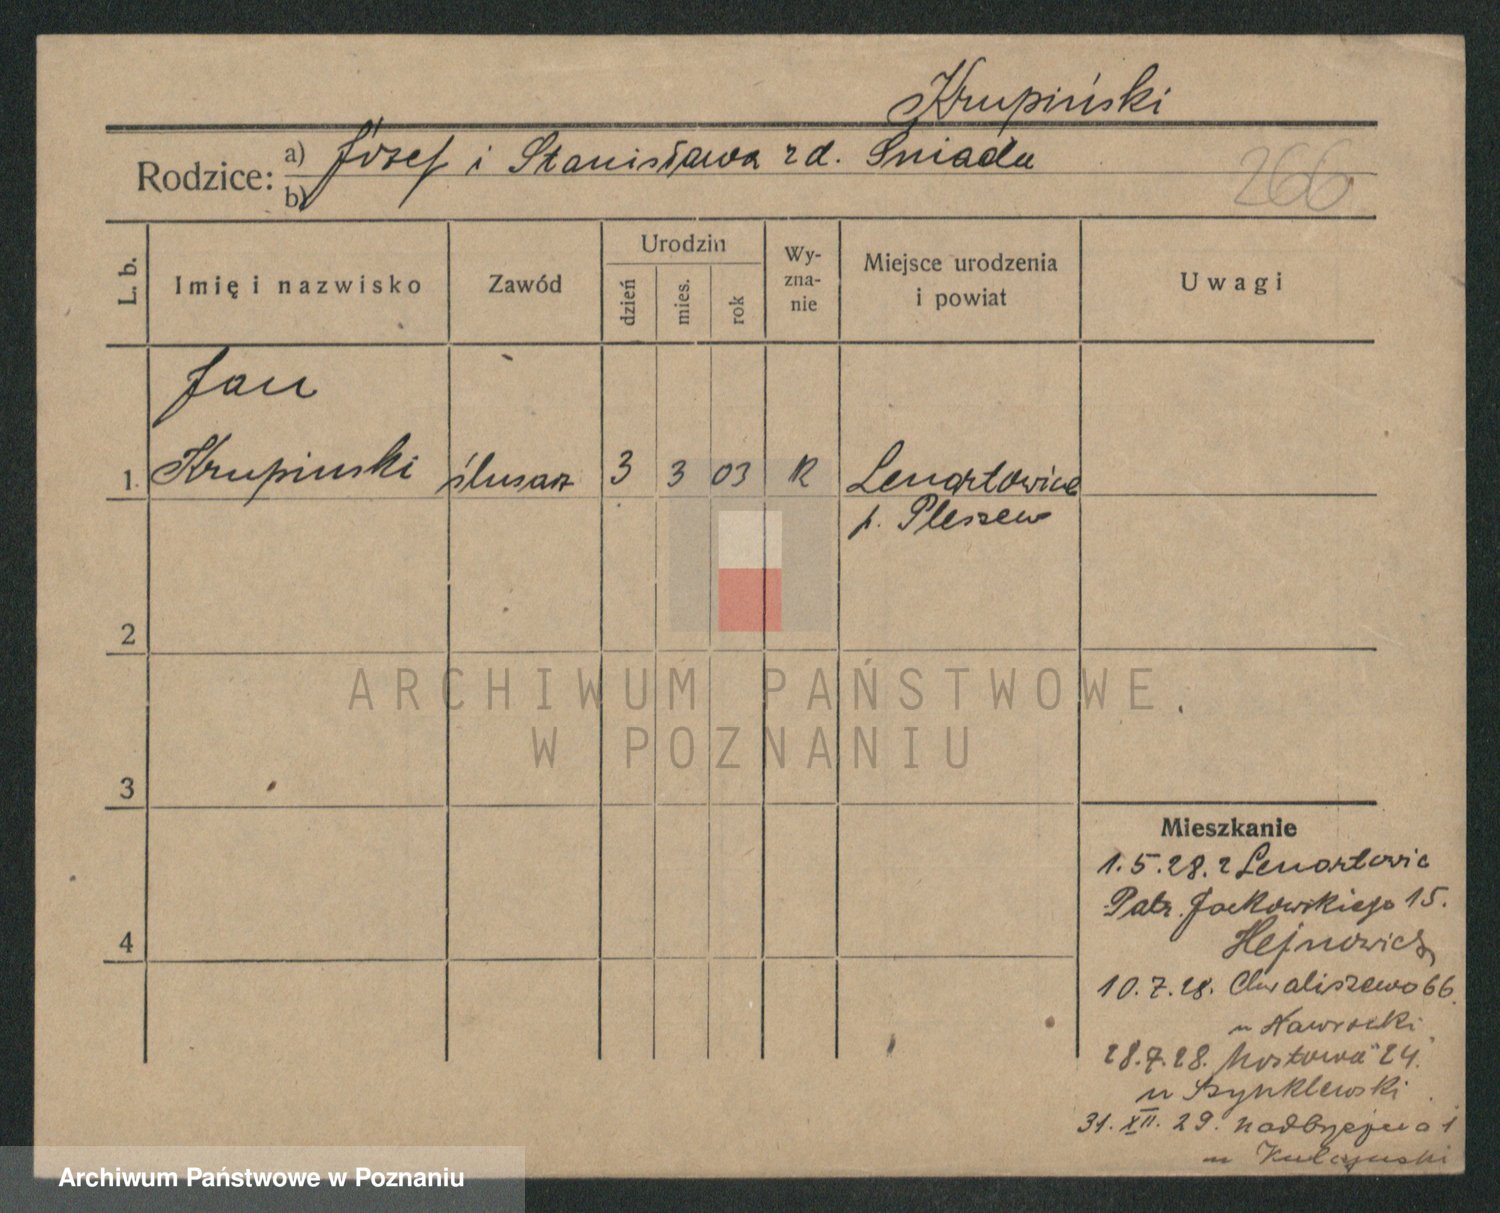 Krupiński
Rodzice: a) Józef i Stanisława zd. Śniada
b)
266
L. b.
Imię i nazwisko
Zawód
Urodzin
dzień
mies.
rok
Wy-
zna-
nie
Miejsce urodzenia
i powiat
Uwagi
Jan
1. Krupinski ślusarz 3 3 03 R Lenartowice
p. Pleszew
2
ARCHIWUM PAŃSTWOWE
W POZNANIU
3
Mieszkanie
1.5.28. z Lenartowic
Patr. Jackowskiego 15.
Hejnowicz
4
10.7.28. Chwaliszewo 66
u Nawrocki
28.7.28. Mostowa 24.
u Szynklewski
31.XII.29.
u
Archiwum Państwowe w Poznaniu